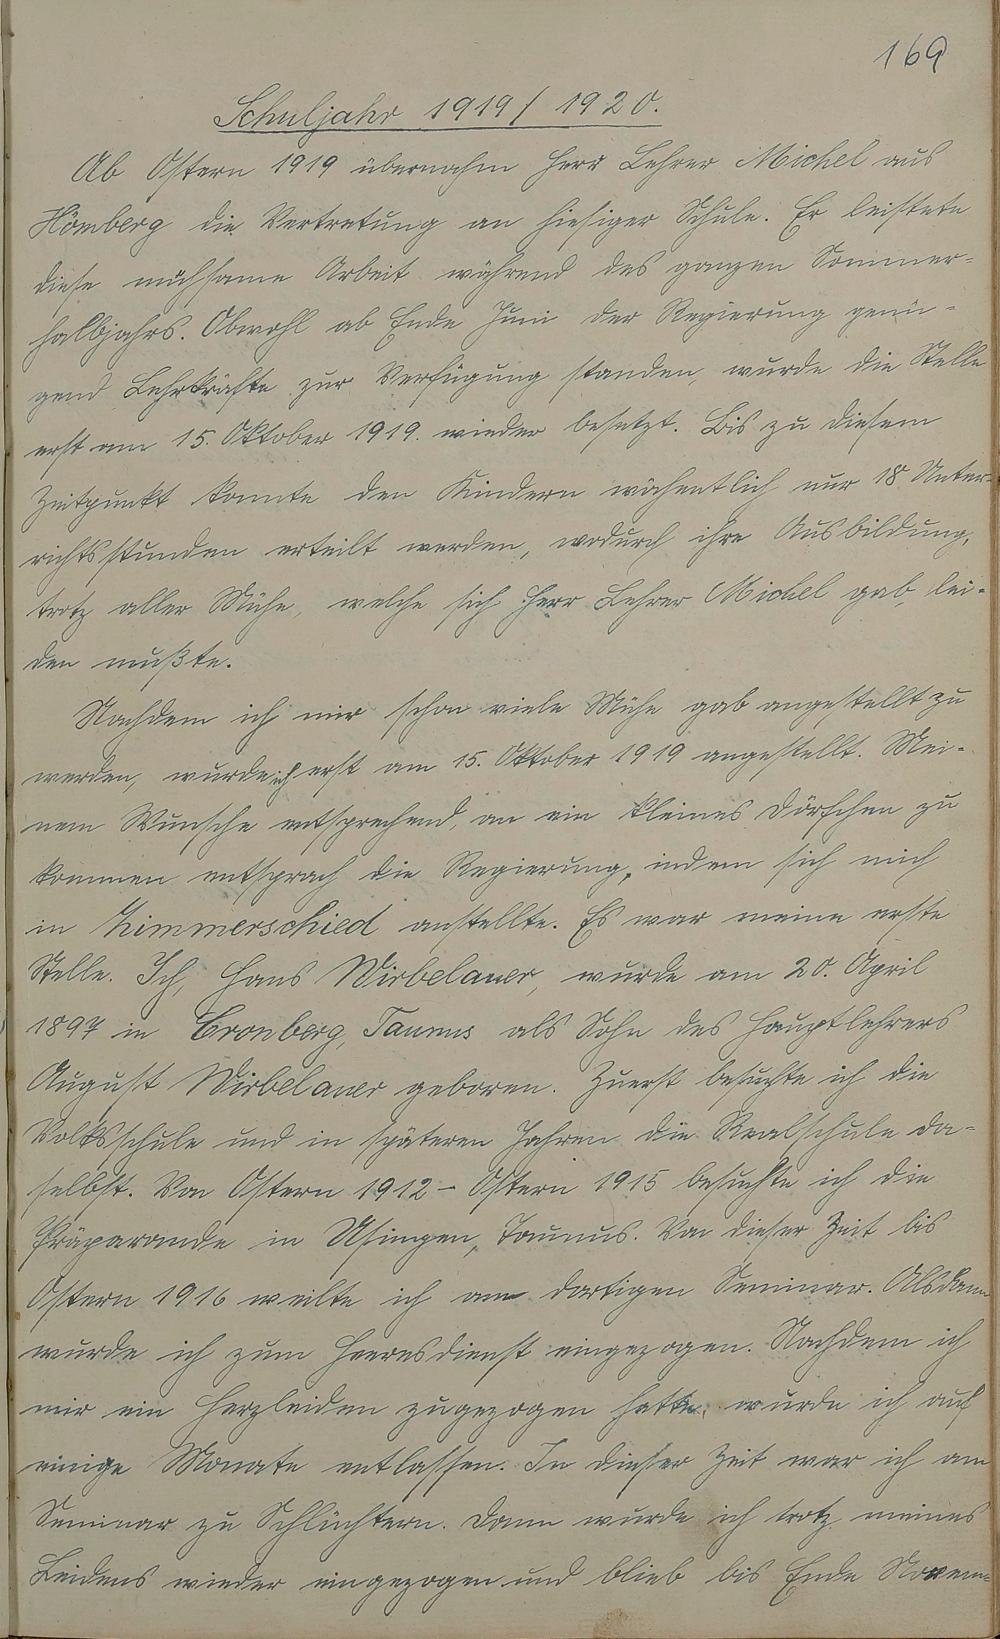 169
Schuljahr 1919/1920.
Ab Ostern 1919 übernahm Herr Lehrer Michel aus
Hömberg die Vertretung an hiesiger Schule. Er leistete
diese mühsame Arbeit während des ganzen Sommer-
halbjahrs. Obwohl ab Ende Juni der Regierung genü-
gend Lehrkräfte zur Verfügung standen, wurde die Stelle
erst am 15. Oktober 1919. wieder besetzt. Bis zu diesem
Zeitpunkt konnte den Kindern wöchentlich nur 18 Unter-
richtsstunden erteilt werden, wodurch ihre Ausbildung,
trotz aller Mühe, welche sich Herr Lehrer Michel gab, lei-
den mußte.
Nachdem ich mir schon viele Mühe gab angestellt zu
werden, wurde ich erst am 15. Oktober 1919 angestellt. Mei-
nem Wunsche entsprechend, an ein kleines Dörfchen zu
kommen entsprach die Regierung, indem sich mich
in Zimmerschied anstellte. Es war meine erste
Stelle. Ich, Hans Wirbelauer, wurde am 20. April
1897 in Cronberg, Taunus als Sohn des Hauptlehrers
August Wirbelauer geboren. Zuerst besuchte ich die
Volksschule und in späteren Jahren die Realschule da-
selbst. Von Ostern 1912 - Ostern 1915 besuchte ich die
Präparande in Usingen, Taunus. Von dieser Zeit bis
Ostern 1916 weilte ich am dortigen Seminar. Alsdann
wurde ich zum Heeresdienst eingezogen. Nachdem ich
mir ein Herzleiden zugezogen hatte, wurde ich auf
einige Monate entlassen. In dieser Zeit war ich am
Seminar zu Schlüchtern. Dann wurde ich trotz meines
Leidens wieder eingezogen und blieb bis Ende Novem-